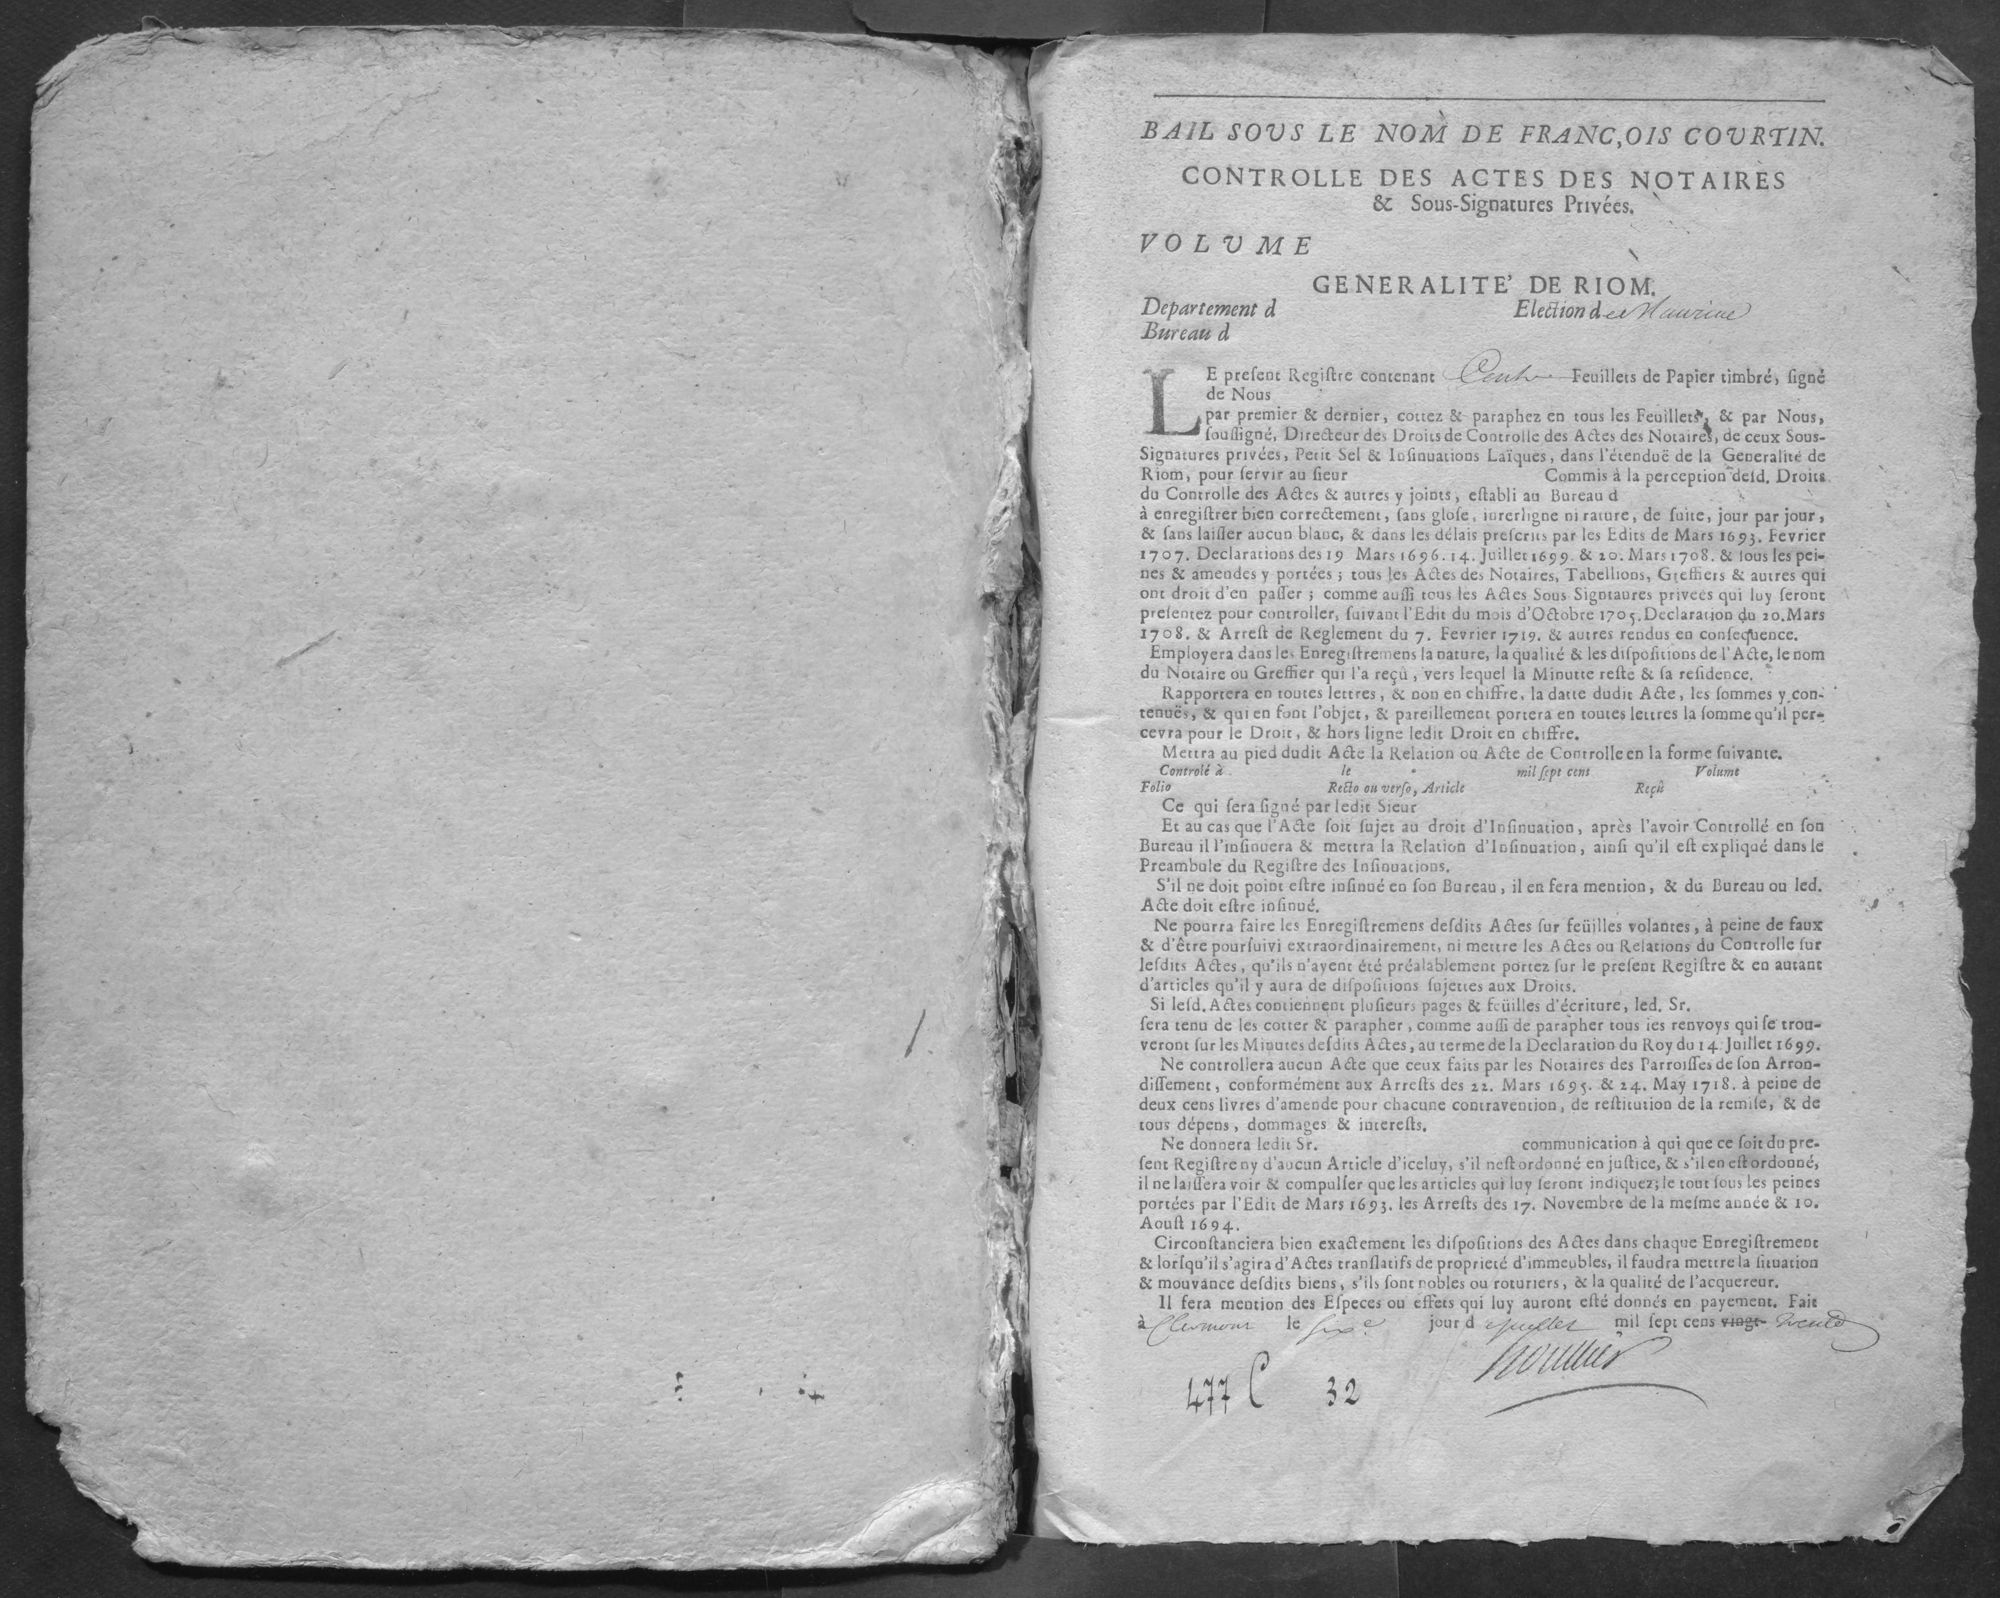 BAIL SOUS LE NOM DE FRANC,OIS COURTIN.
CONTROLLE DES ACTES DES NOTAIRES
& Sous-Signatures Privées.
VOLUME
GENERALITE' DE RIOM.
Departement d Election de Mauriac
Bureau d
LE preſent Regiſtre contenant Feuillets de Papier timbré, ſigné
de Nous
par premier & dernier, cottez & paraphez en tous les Feuillets, & par Nous,
ſouſſigné, Directeur des Droits de Controlle des Actes des Notaires, de ceux Sous-
Signatures privées, Petit Sel & Inſinuations Laïques, dans l'étenduë de la Generalité de
Riom, pour ſervir au ſieur Commis à la perception deſd. Droits
du Controlle des Actes & autres y joints, eſtabli au Bureau d
à enregiſtrer bien correctement, ſans gloſe, inrerligne ni rature, de ſuite, jour par jour,
& ſans laiſſer aucun blanc, & dans les délais preſcrits par les Edits de Mars 1693. Fevrier
1707. Declarations des 19 Mars 1696. 14. Juillet 1699. & 20. Mars 1708. & ſous les pei-
nes & amendes y portées ; tous les Actes des Notaires, Tabellions, Greffiers & autres qui
ont droit d'en paſſer ; comme auſſi tous les Actes Sous Signtaures privées qui luy ſeront
preſentez pour controller, ſuivant l'Edit du mois d'Octobre 1705. Declaration du 20. Mars
1708. & Arreſt de Reglement du 7. Fevrier 1719. & autres rendus en conſequence.
Employera dans les Enregiſtremens la nature, la qualité & les diſpoſitions de l'Acte, le nom
du Notaire ou Greffier qui l'a reçû, vers lequel la Minutte reſte & ſa reſidence.
Rapportera en toutes lettres, & non en chiffre, la datte dudit Acte, les ſommes y con-
tenuës, & qui en font l'objet, & pareillement portera en toutes lettres la ſomme qu'il per-
cevra pour le Droit, & hors ligne ledit Droit en chiffre.
Mettra au pied dudit Acte la Relation ou Acte de Controlle en la forme ſuivante.
Controlé à le mil ſept cens Volume
Folio Recto ou verso, Article Reçû
Ce qui ſera ſigné par ledit Sieur
Et au cas que l'Acte ſoit ſujet au droit d'Inſinuation, après l'avoir Controllé en ſon
Bureau il l'inſinuera & mettra la Relation d'Inſinuation, ainſi qu'il eſt expliqué dans le
Preambule du Regiſtre des Inſinuations.
S'il ne doit point eſtre inſinué en ſon Bureau, il en fera mention, & du Bureau ou led.
Acte doit eſtre inſinué.
Ne pourra faire les Enregiſtremens deſdits Actes ſur feüilles volantes, à peine de faux
& d'être pourſuivi extraordinairement, ni mettre les Actes ou Relations du Controlle ſur
leſdits Actes, qu'ils n'ayent été préalablement portez ſur le preſent Regiſtre & en autant
d'articles qu'il y aura de diſpoſitions ſujettes aux Droits.
Si leſd. Actes contiennent pluſieurs pages & feüilles d'écriture, led. Sr.
ſera tenu de les cotter & parapher, comme auſſi de parapher tous les renvoys qui ſe trou-
veront ſur les Minutes deſdits Actes, au terme de la Declaration du Roy du 14 Juillet 1699.
Ne controllera aucun Acte que ceux faits par les Notaires des Parroiſſes de ſon Arron-
diſſement, conformément aux Arreſts des 22. Mars 1695. & 24. May 1718. à peine de
deux cens livres d'amende pour chacune contravention, de reſtitution de la remiſe, & de
tous dépens, dommages & intereſts.
Ne donnera ledit Sr. communication à qui que ce ſoit du pre-
ſent Regiſtre ny d'aucun Article d'iceluy, s'il neſt ordonné en juſtice, & s'il en eſt ordonné,
il ne laiſſera voir & compulſer que les articles qui luy ſeront indiquez; le tout ſous les peines
portées par l'Edit de Mars 1693. les Arreſts des 17. Novembre de la meſme année & 10.
Aouſt 1694.
Circonſtanciera bien exactement les diſpoſitions des Actes dans chaque Enregiſtrement
& lorſqu'il s'agira d'Actes tranſlatifs de proprieté d'immeubles, il faudra mettre la ſituation
& mouvance deſdits biens, s'ils ſont nobles ou roturiers, & la qualité de l'acquereur.
Il fera mention des Eſpeces ou effets qui luy auront eſté donnés en payement. Fait
à Clermont le Sixe jour d juillet mil ſept cens vingt trente
477 C 32